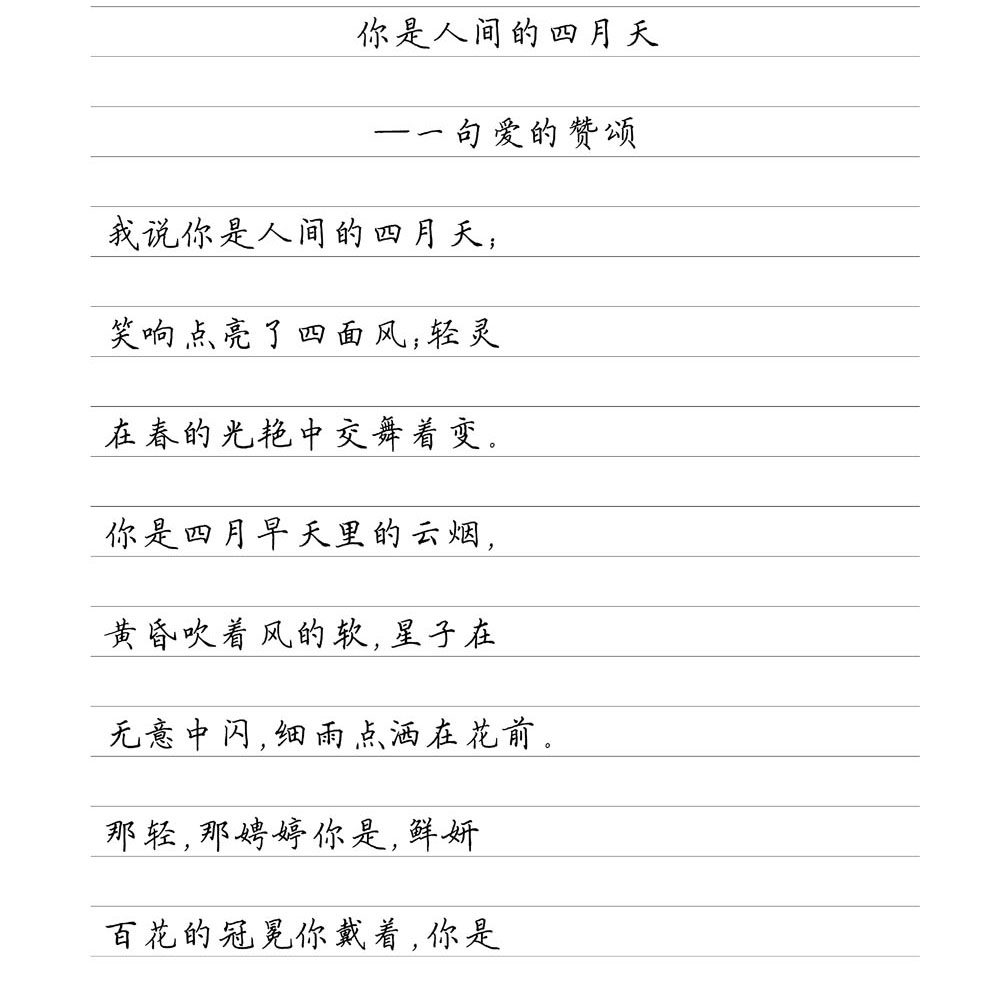 你是人间的四月天
——一句爱的赞颂
我说你是人间的四月天；
笑响点亮了四面风；轻灵
在春的光艳中交舞着变。
你是四月早天里的云烟，
黄昏吹着风的软，星子在
无意中闪，细雨点洒在花前。
那轻，那娉婷你是，鲜妍
百花的冠冕你戴着，你是